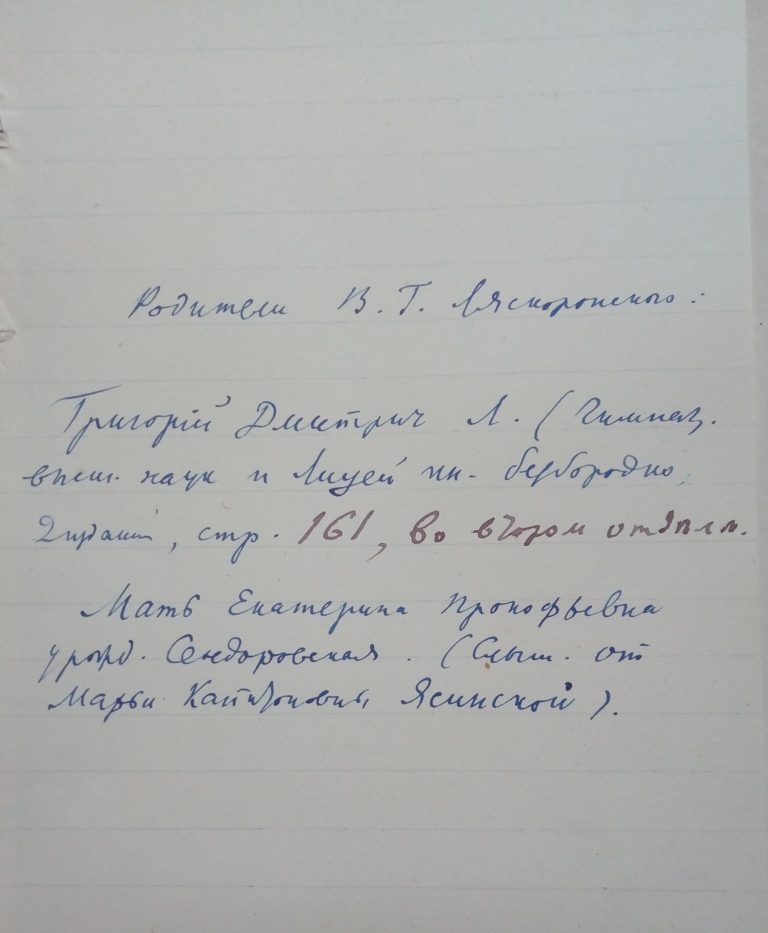 Родители В. Г. Ляскоронского:
Григорій Дмитрич Л. (Гимназ.
высш. наук и Лицей кн. Безбородко,
2 издание, стр. 161, во втором отдѣлѣ.
Мать Екатерина Прокофьевна
урожд. Сендоровская. (Слыш. от
Марьи Капитоновны Ясинской).